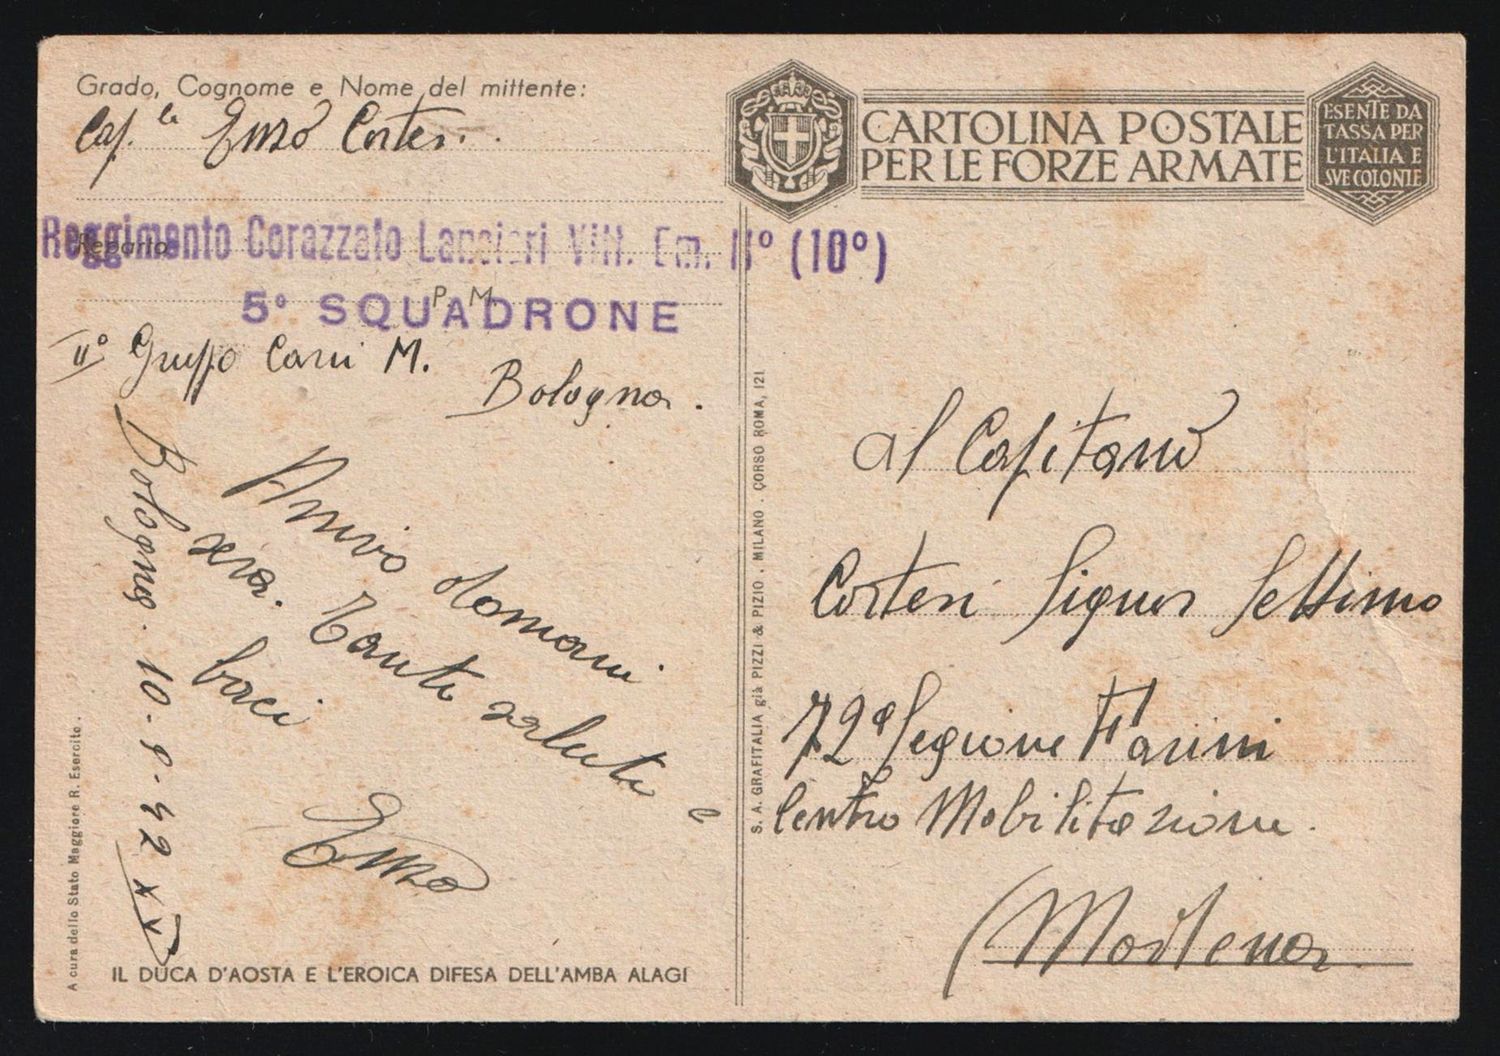 Grado, Cognome e Nome del mittente:
Cap.le Enzo Cortesi.
Reparto
Reggimento Corazzato Lancieri Vitt. Em. IIº (10º)
P. M.
5º SQUADRONE
IIº Gruppo Carri M.
Bologna.
Bologna. 10-8-42 XX
Arrivo domani
sera. Tanti saluti e
baci
Enzo
A cura dello Stato Maggiore R. Esercito.
IL DUCA D'AOSTA E L'EROICA DIFESA DELL'AMBA ALAGI
S. A. GRAFITALIA già PIZZI & PIZIO . MILANO . CORSO ROMA, 121
CARTOLINA POSTALE
PER LE FORZE ARMATE
ESENTE DA
TASSA PER
L'ITALIA E
SVE COLONIE
al Capitano
Cortesi Signor Settimo
72ª Legione Farini
Centro Mobilitazione.
Modena